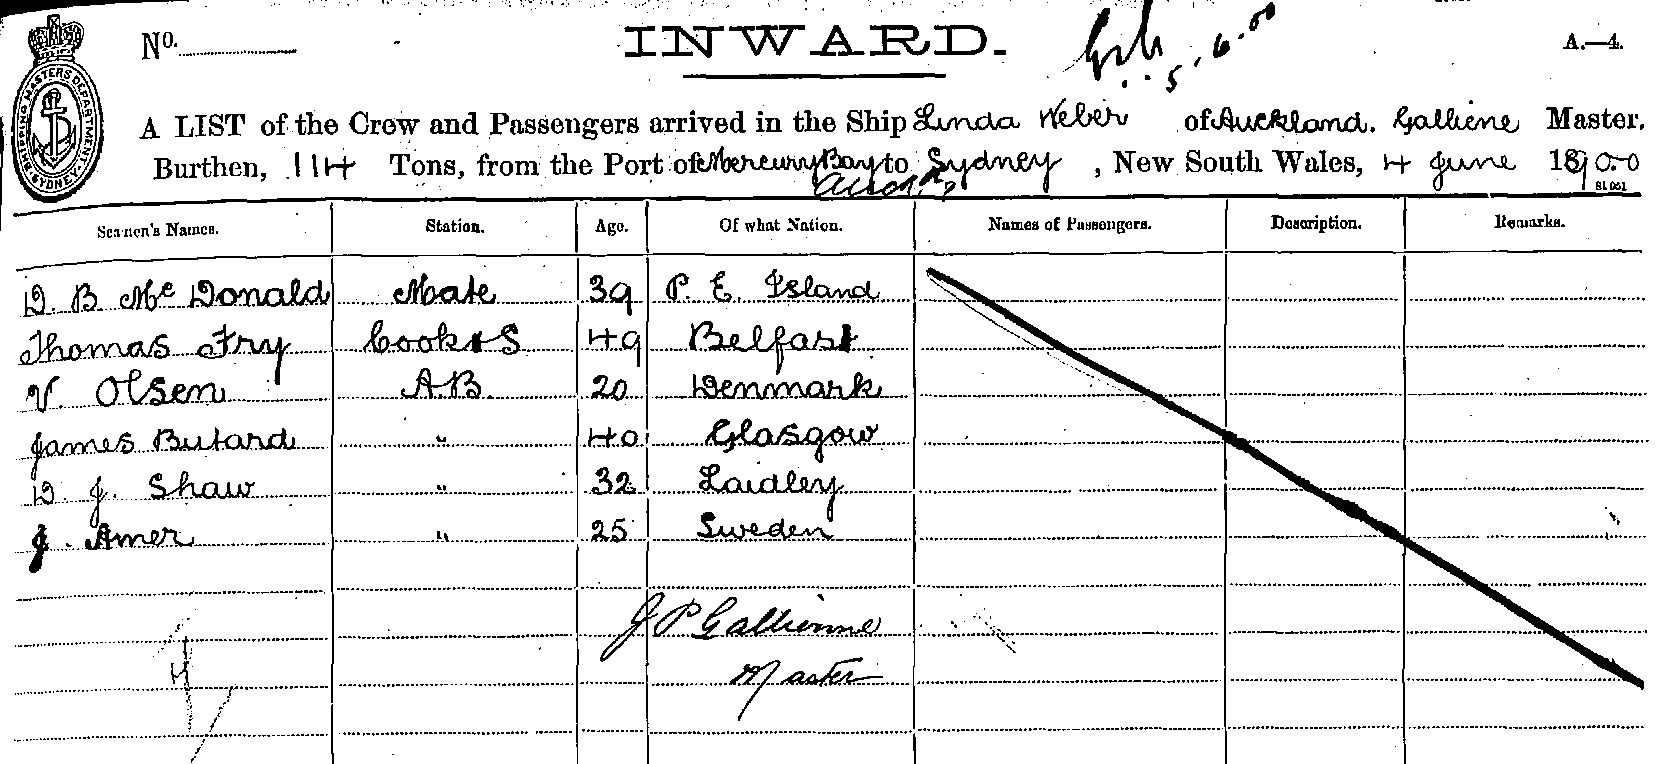 No.
INWARD.
5.6.00
A.—4.
SHIPPING MASTERS DEPARTMENT SYDNEY
A LIST of the Crew and Passengers arrived in the Ship Linda Weber of Auckland. Galliene Master.
Burthen, 114 Tons, from the Port of Mercury Bay to Sydney, New South Wales, 4 June 1900
Seamen's Names. Station. Age. Of what Nation. Names of Passengers. Description. Remarks.
D. B. Mc Donald Mate 39 P. E. Island
Thomas Fry Cook & S 49 Belfast
V. Olsen A.B. 20 Denmark
James Butard " 40 Glasgow
D. J. Shaw " 32 Laidley
J. Amer " 25 Sweden
J P Gallienne
Master